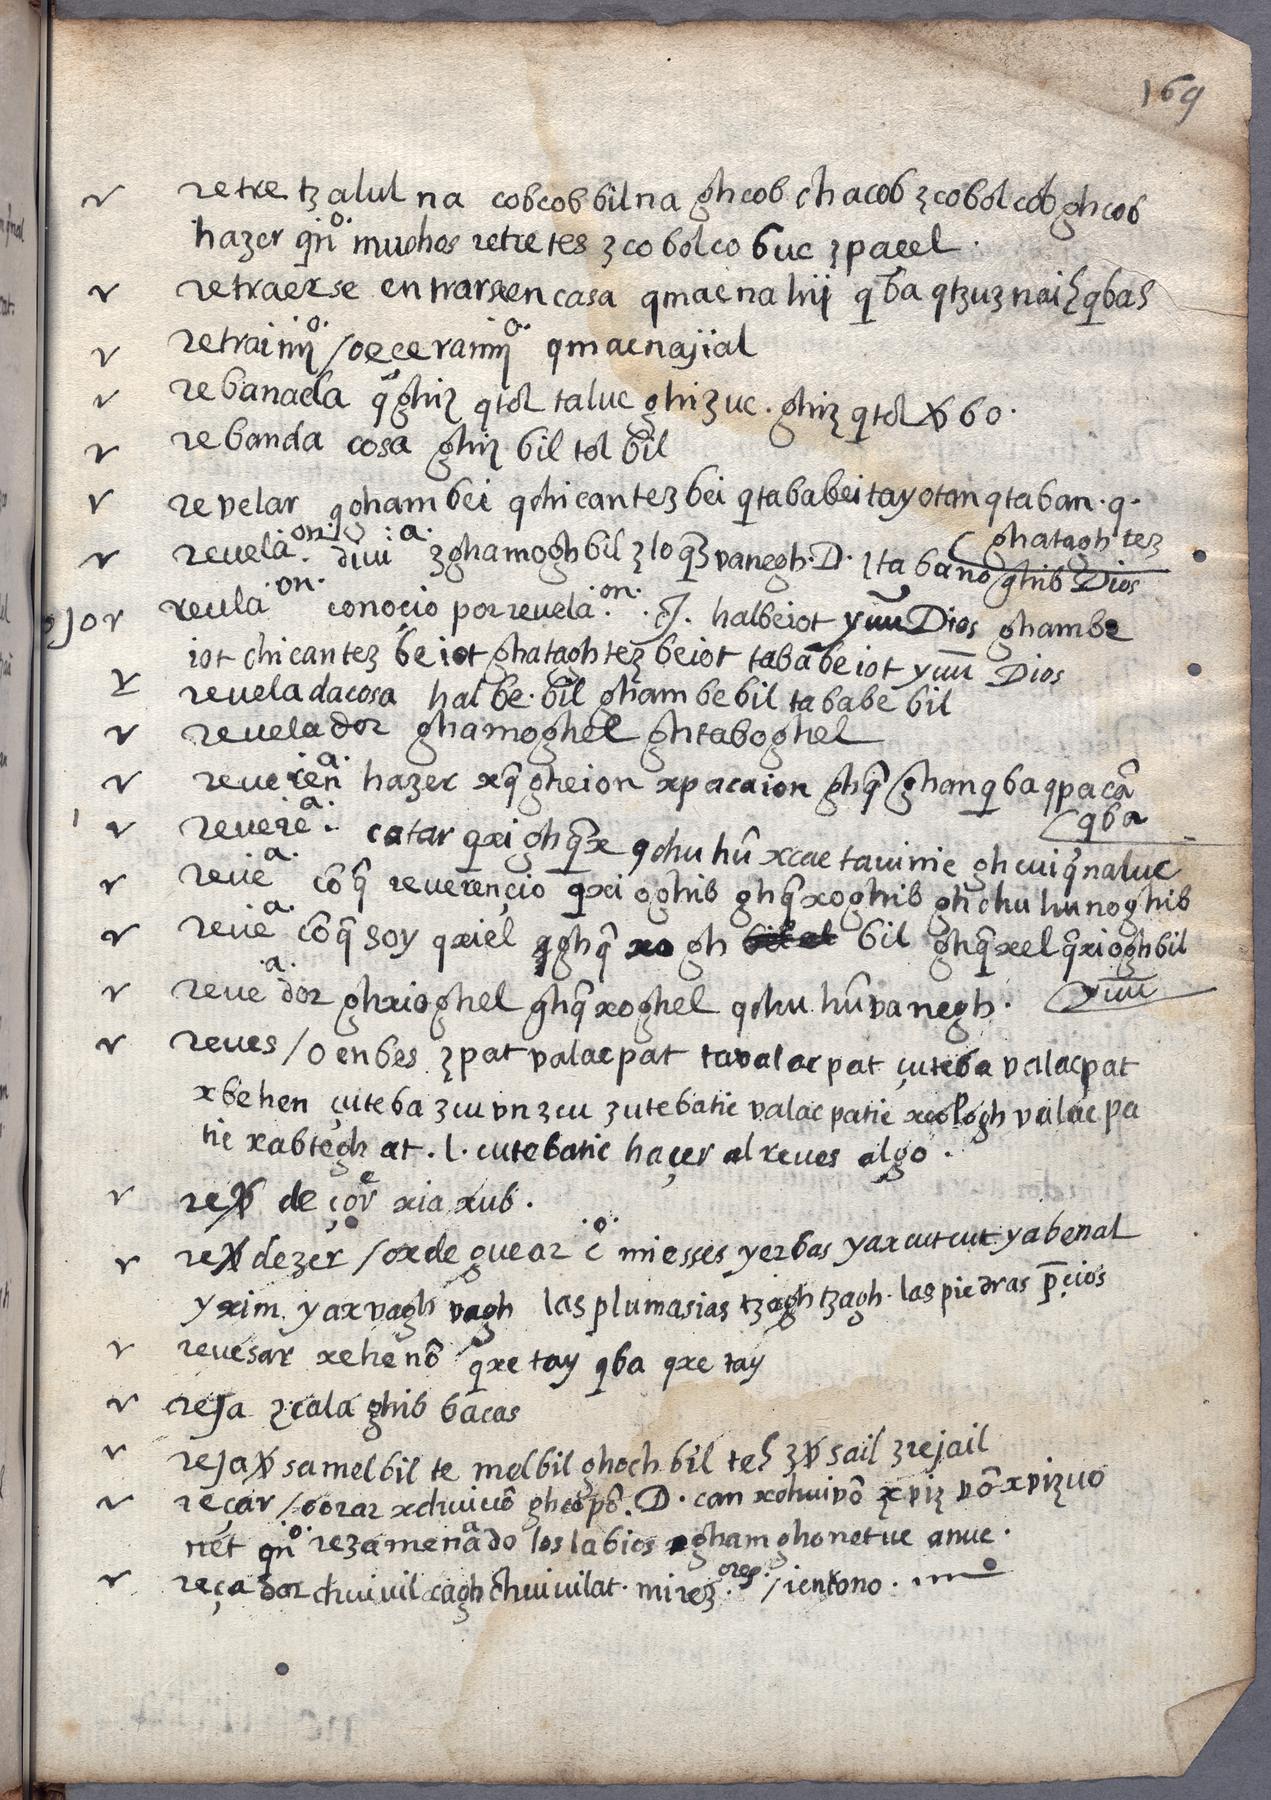 169
r retre tʒalul na cobcob bil na ghcob chacob ʒcobol cob ghcob
hazer qñº muchos retretes ʒcobolco buc ʒpacel .
r retraerse entrarse en casa qmac na hij q̃ba qtʒuʒ naih qbah
r retraimiº /o ecerramiº qmac najial
r rebanada q̃ghiʒ qtol taluc ghiʒuc . ghiʒ qtol xº bo .
r rebanda cosa ghiʒ bil tol bil
r revelar qcham bei qchicanteʒ bei qtababei tayotan qtaban . q .
r reuelaᵒⁿ. diuiᵃ. ʒghamogh bil ʒloq̃ʒ vanegh . D . ʒtabano ghib Dios
( ghatagh teʒ
ojo r reulaᵒⁿ conoçio por reuelaᵒⁿ. .J. halbeiot yuũ Dios ghambe
iot chicanteʒ beiot ghatagh teʒ beiot tababeiot yuũ Dios
r reuelada cosa halbe . bil ghambe bil tababe bil
r reuelador ghamoghel ghtaboghel
r reuerenᵃ. hazer xq̃gheion xpacaion ghq̃ ghan qba qpacã
( qba
r reuereᵃ. catar qxi ghq̃x qchu hũ xcac tauinic ghcuiq̃naluc
r reueᵃ. cõq̃ reuerençio qxi oghib ghq̃xoghib ghchu hunoghib
r reueᵃ. cõq̃ soy qxiel ghq̃ xo gh bil ghq̃xel q̃xioghbil
( yuũ
r reueᵃ.dor ghxioghel ghq̃xoghel qchu hũ vanegh .
r reues /o enbes ʒpat valacpat tavalac pat çuteba valacpat
xbehen çuteba ʒcu vn ʒcu ʒutebatic valac patic xcologh valac pa
tic xabtegh at . l . cutebatic haçer al reues algo .
r rexº de çorᵉ xia xub .
r rexºdeʒer /o xde guear cº miesses yerbas yaxcutcut yabenal
yxim yaxvagh vagh las plumasias tʒaghtʒagh . las piedras p̃çios
r reuesar xehenõ qxetay qba qxetay
r reja ʒcala ghib bacas
r rejaxº samelbil te melbil ghoch bil teh ʒxºsail ʒrejail
r reçar /o orar xchuiuõ ghcopõ . D . can xchuivõ ʒxviʒ võ xviʒuo
net qñº rezameneãdo los labios gham ghonetuc anuc .
r reçador chuiuil cagh chuiuilat . mirezᵒʳᵉˢ. /ientono .